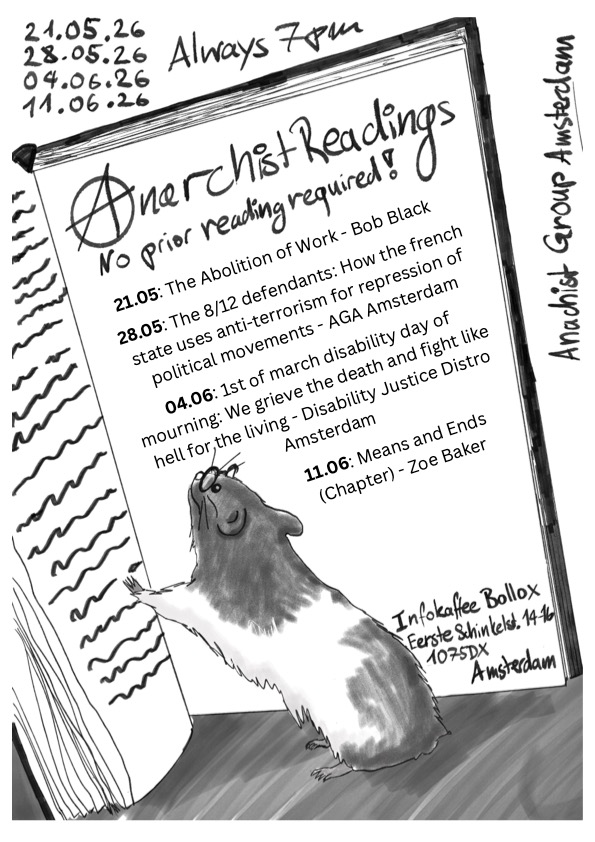 21.05.26
28.05.26
04.06.26
11.06.26
Always 7pm
Anarchist Readings
No prior reading required!
21.05: The Abolition of Work - Bob Black
28.05: The 8/12 defendants: How the french
state uses anti-terrorism for repression of
political movements - AGA Amsterdam
04.06: 1st of march disability day of
mourning: We grieve the death and fight like
hell for the living - Disability Justice Distro
Amsterdam
11.06: Means and Ends
(Chapter) - Zoe Baker
Infokaffee Bollox
Eerste Schinkelst. 14-16
1075DX
Amsterdam
Anachist Group Amsterdam